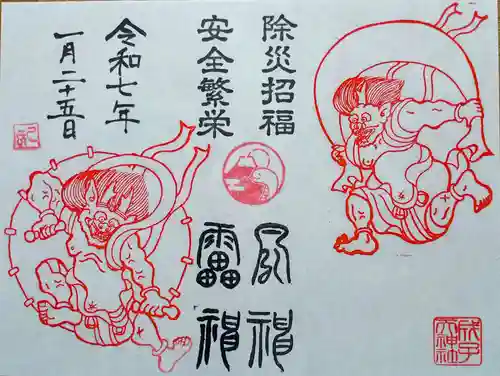 除災招福
安全繁栄
令和七年
一月二十五日
風神
雷神
成子
天神